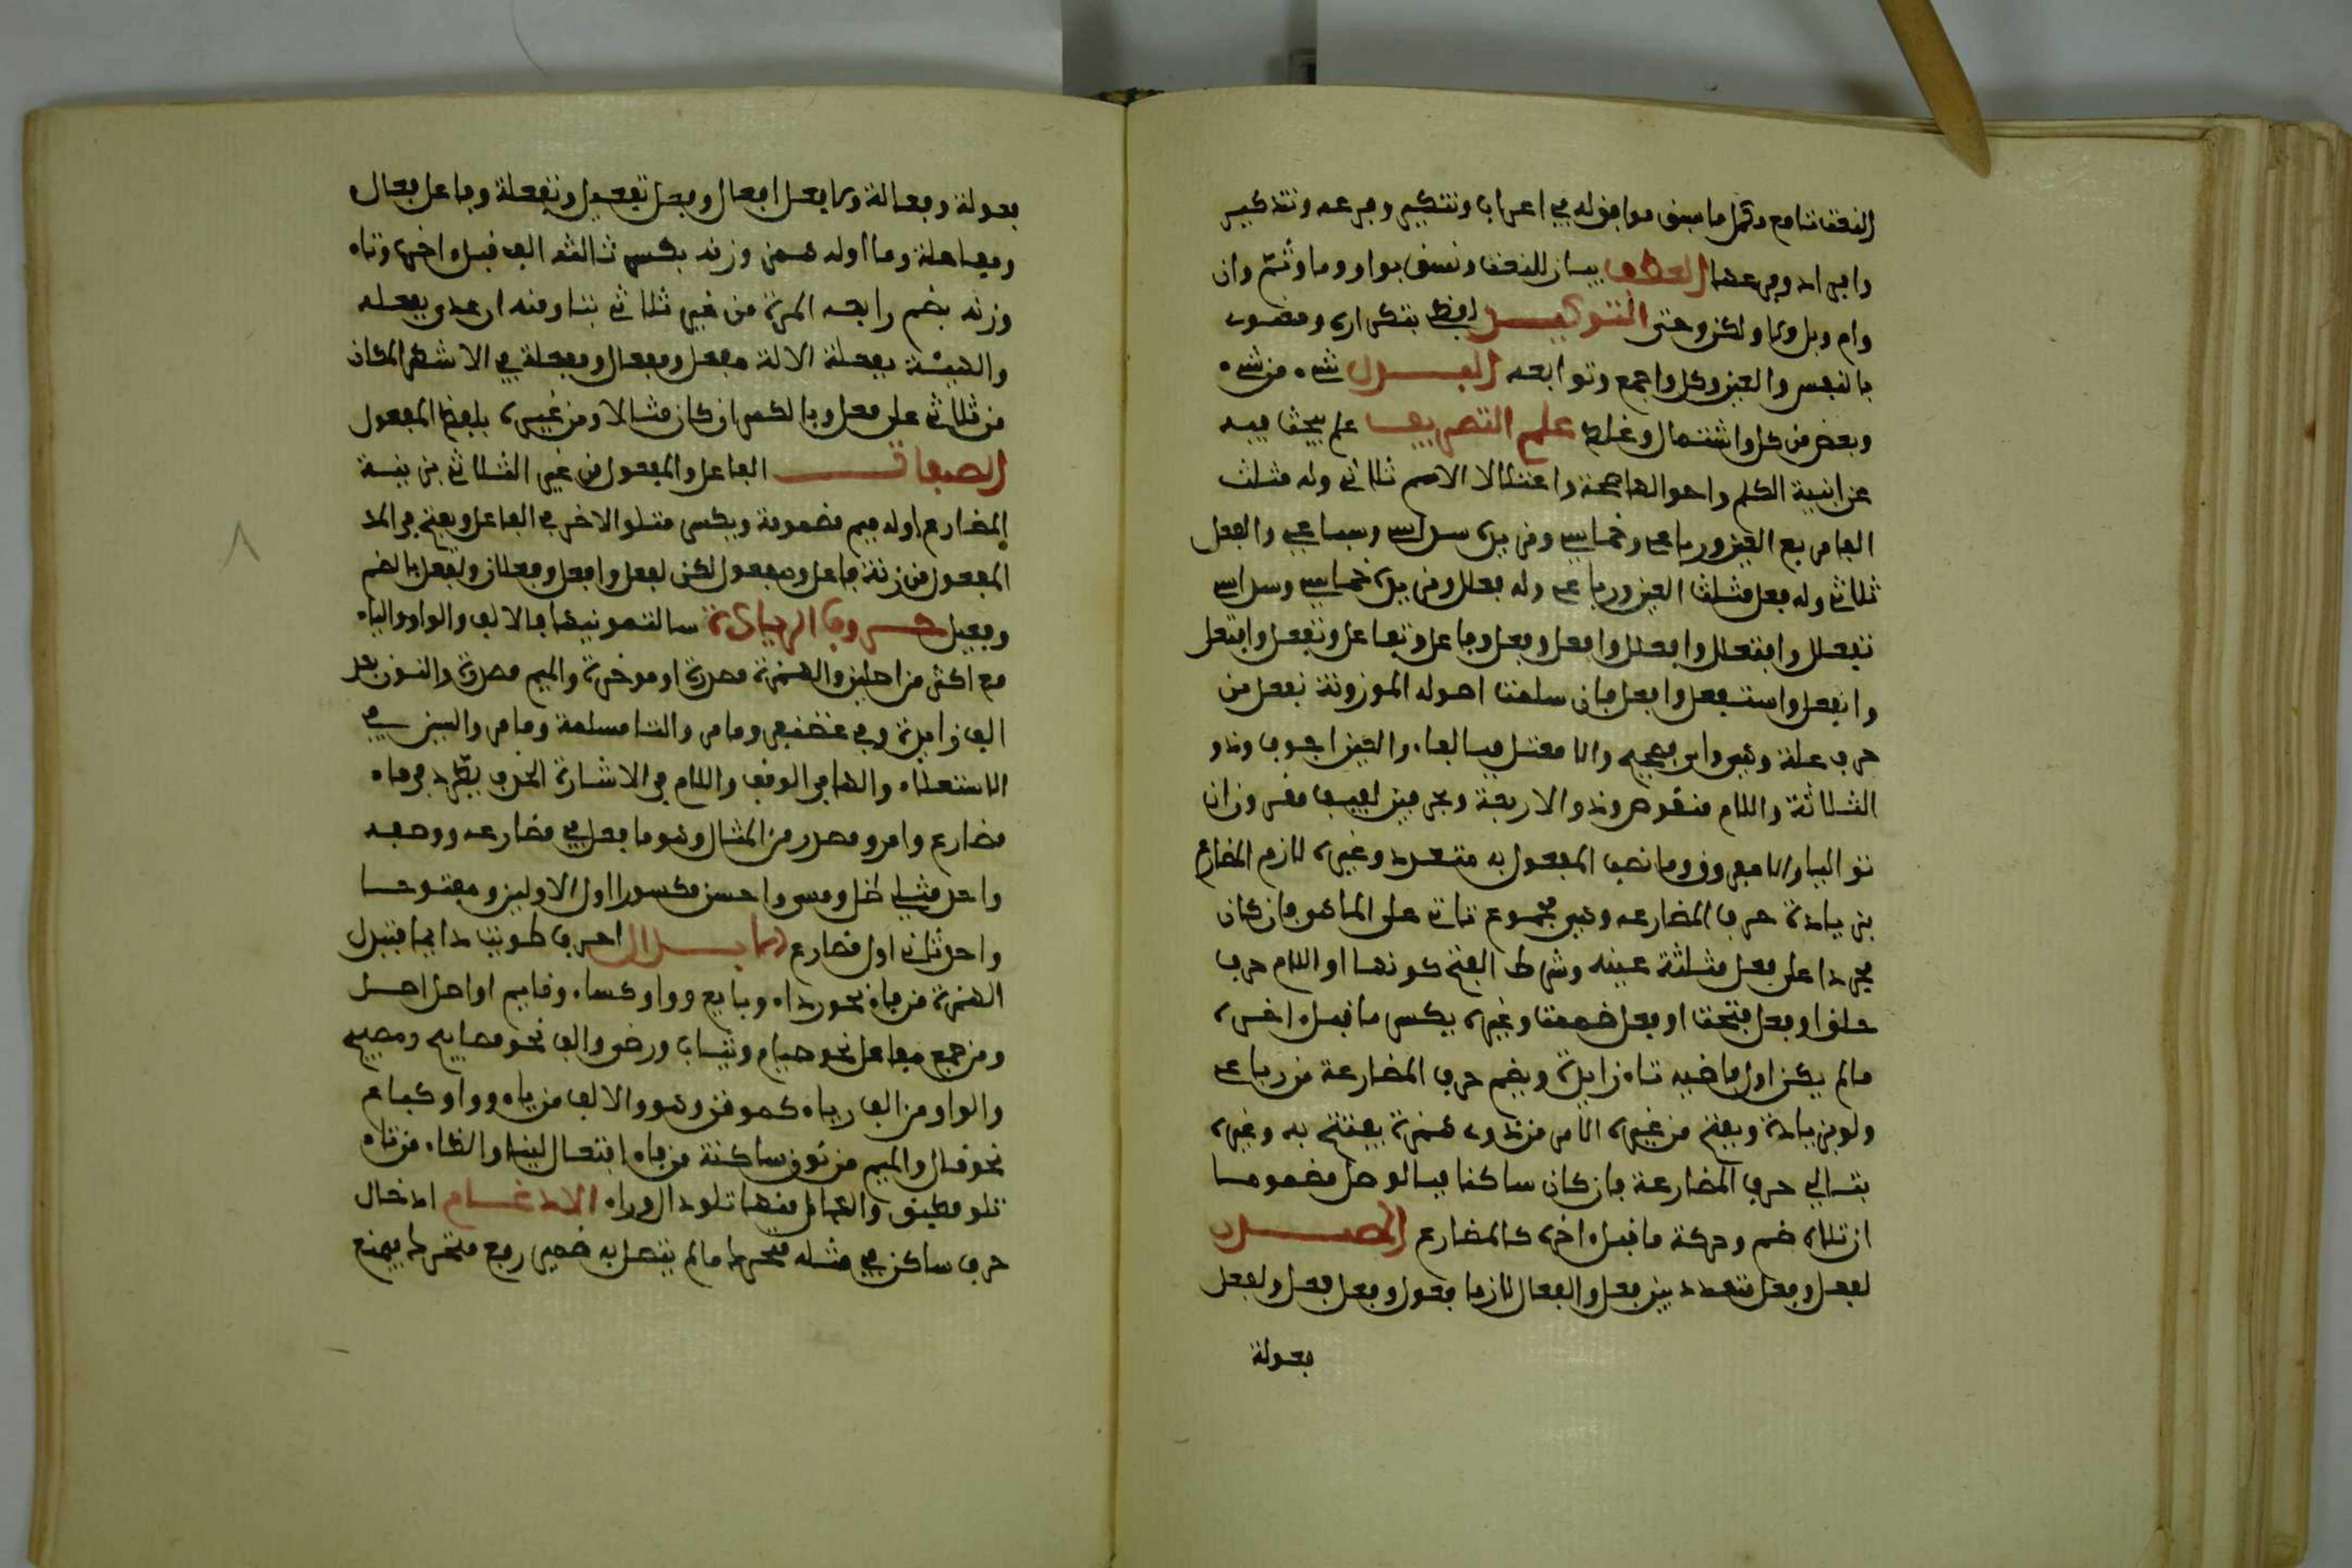 النعت تابع مكمل ما سبق موافق له في اعراب وتنكير وفرعه وتذكير
وافراد وفرعهما العطف بيان كالنعت ونسق بواو وفا وثم وان
وام وبل ولا ولكن وحتى التوكيد لفظي بتكراره ومعنوي
بالنفس والعين وكل واجمع وتوابعه البدل شيء من شيء
وبعض من كل واشتمال وغلط علم التصريف علم يبحث فيه
عن ابنية الكلم واحوالها صحة واعتلالا الاسم ثلاثي وله مثلث
الفا مربع العين ورباعي وخماسي ومزيده سداسي وسباعي والفعل
ثلاثي وله فعل مثلث العين ورباعي وله فعلل ومزيده خماسي وسداسي
تفعلل وافعنلل وافعلل وافعل وفعل وفاعل وتفاعل وتفعل وافتعل
وانفعل واستفعل وافعل فان سلمت اصوله الموزونة بفعل من
حرف علة وهي واي فصحيح والا معتل فبالفاء والعين اجوف وذو
الثلاثة واللام منقوص وذو الاربعة وبحرفين لفيف مقرون ان
توالیا والا مفروق وما نصب المفعول به متعد وغيره لازم المضارع
بزيادة حرف المضارعه وهي مجموع ناتي على الماضي فان كان
مجردا على فعل مثلثة عينه وشرط الفتح كونها او اللام حرف
حلق او فعل فتحت او فعل ضمت وغيره بكسر ما قبل اخره
ما لم يكن اول ماضيه تاء زايدة ويضم حرف المضارعة من رباعي
ولو بزيادة ويفتح من غيره الامر من ذي همزة يفتتح به وغيره
بتالي حرف المضارعة فان كان ساكنا فبالوصل مضموما
ان تلاه ضم وحركة ما قبل اخره كالمضارع المصدر
لفعل وفعل متعديين فعل والفعال لازما فعول وفعل فعل ولفعل
فعولة
فعولة وفعالة ولافعل افعال وفعل تفعيل وتفعلة وفاعل فعال
ومفاعلة وما اوله همز وزنه بكسر ثالثه الف قبل اخره وتاء
وزنه بضم رابعه المرة من غير ثلاثي بتا ومنه ان عري بفعله
والهيئة بفعلة الالة مفعل ومفعال ومفعلة في الاشهر المكان
من ثلاثي على مفعل وبالكسر ان كان مثالا ومن غيره بلفظ المفعول
الصفات الفاعل والمفعول من غير الثلاثي بزنة
المضارع اوله ميم مضمومة ويكسر متلو الاخر في الفاعل ويفتح في
المفعول من زنة فاعل ومفعول لكن لفعل وافعل وفعلان ولفعل بالضم
وفعيل حروف الزيادة سالتمونيها فالالف والواو والياء
مع اكثر من اصلين والهمزة مصدرة او موخرة والميم مصدرة والنون بعد
الف زايدة وفي غضنفر وما مر والتا مسلمة وما مر والسين في
الاستفعال والها في الوقف واللام في الاشارة الحذف يطرد في فاء
مضارع وامر ومصدر من المثال وهو ما فعل في مضارعه ووصفه
واحد مثلي ظل ومس واحس مكسورا اول الاولين ومفتوحا
واحد ثاني اول مضارع الابدال احرف طويت دايما فتبدل
الهمزة من ياء نحو رداء وبايع وواو كساء وقايم او احد احد
ومن جمع مفاعل نحو صيام وثياب ورضي والف نحو مصابيح ومصبيح
والواو من الف وياء كموقن ونهو والالف من ياء وواو كباع
نحو قال والميم من نون ساكنة من ياء افتعال لينا والطاء من تاء
تلو مطبق والدال منها تلو دال وراء الادغام ادخال
حرف ساكن في مثله متحرك ما لم يتصل به ضمير رفع متحرك فيمتنع